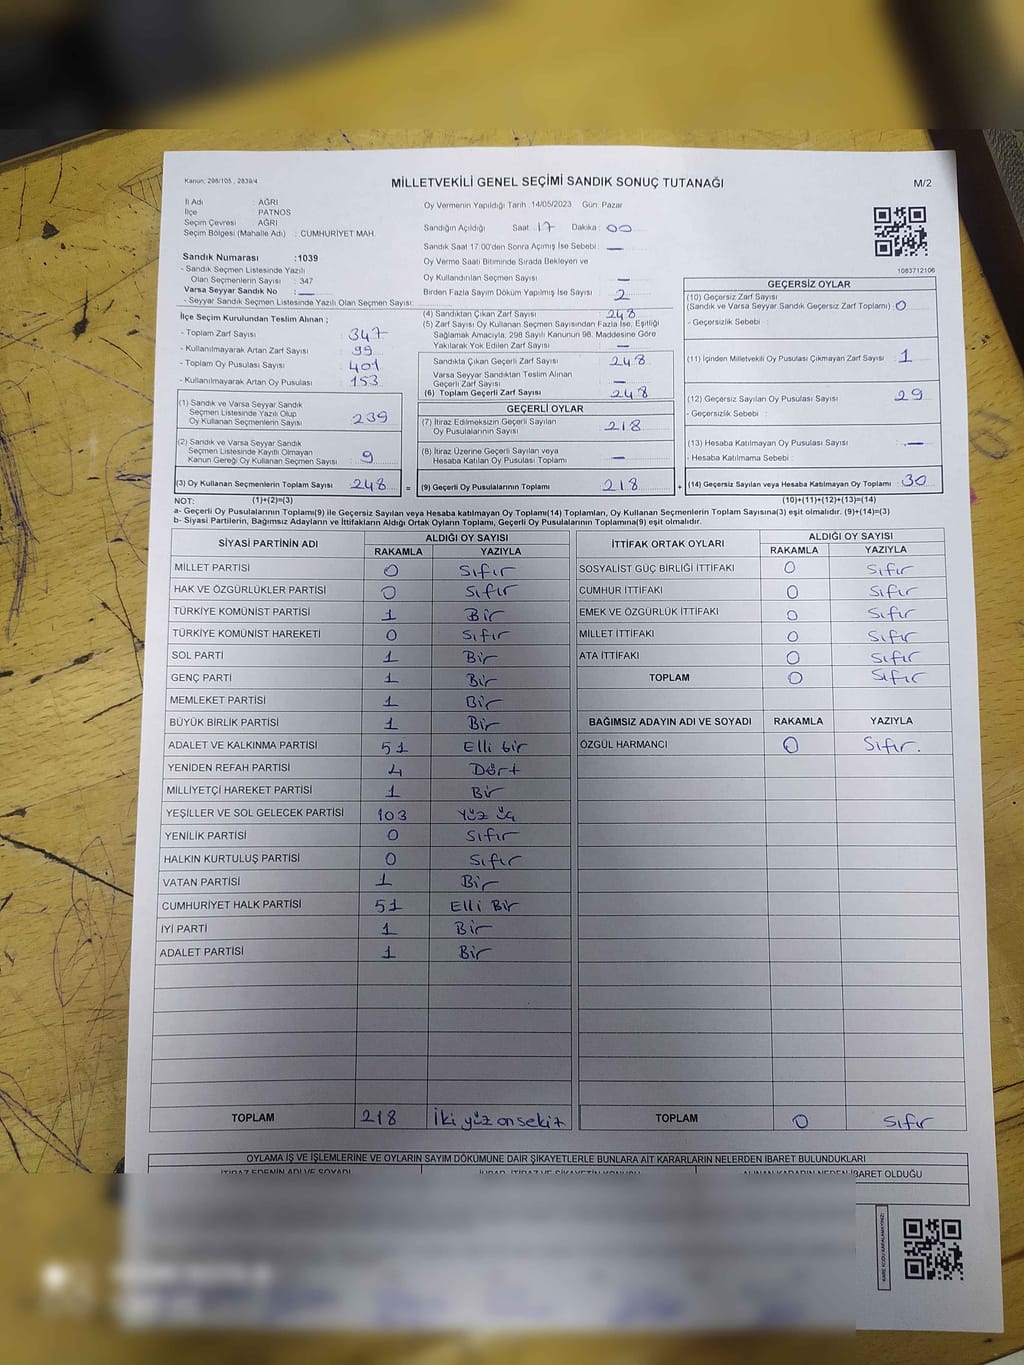 Kanun: 298/105 , 2839/4
MİLLETVEKİLİ GENEL SEÇİMİ SANDIK SONUÇ TUTANAĞI
M/2
İl Adı : AĞRI
İlçe PATNOS
Seçim Çevresi : AĞRI
Seçim Bölgesi (Mahalle Adı) : CUMHURİYET MAH.
Oy Vermenin Yapıldığı Tarih :14/05/2023 Gün: Pazar
Sandığın Açıldığı Saat :17 Dakika : 00
Sandık Saat 17:00'den Sonra Açımış İse Sebebi : —
Oy Verme Saati Bitiminde Sırada Bekleyen ve
Oy Kullandırılan Seçmen Sayısı —
Birden Fazla Sayım Döküm Yapılmış İse Sayısı : 2
1083712106
Sandık Numarası :1039
- Sandık Seçmen Listesinde Yazılı
Olan Seçmenlerin Sayısı : 347
Varsa Seyyar Sandık No : —
- Seyyar Sandık Seçmen Listesinde Yazılı Olan Seçmen Sayısı:
İlçe Seçim Kurulundan Teslim Alınan ;
- Toplam Zarf Sayısı : 347
- Kullanılmayarak Artan Zarf Sayısı : 99
- Toplam Oy Pusulası Sayısı : 401
- Kullanılmayarak Artan Oy Pusulası : 153
(1) Sandık ve Varsa Seyyar Sandık
Seçmen Listesinde Yazılı Olup
Oy Kullanan Seçmenlerin Sayısı : 239
(2) Sandık ve Varsa Seyyar Sandık
Seçmen Listesinde Kayıtlı Olmayan
Kanun Gereği Oy Kullanan Seçmen Sayısı : 9
(3) Oy Kullanan Seçmenlerin Toplam Sayısı : 248 =
(4) Sandıktan Çıkan Zarf Sayısı : 248
(5) Zarf Sayısı Oy Kullanan Seçmen Sayısından Fazla İse, Eşitliği
Sağlamak Amacıyla, 298 Sayılı Kanunun 98. Maddesine Göre
Yakılarak Yok Edilen Zarf Sayısı : —
Sandıkta Çıkan Geçerli Zarf Sayısı : 248
Varsa Seyyar Sandıktan Teslim Alınan
Geçerli Zarf Sayısı : —
(6) Toplam Geçerli Zarf Sayısı : 248
GEÇERLİ OYLAR
(7) İtiraz Edilmeksizin Geçerli Sayılan
Oy Pusulalarının Sayısı : 218
(8) İtiraz Üzerine Geçerli Sayılan veya
Hesaba Katılan Oy Pusulası Toplamı : —
(9) Geçerli Oy Pusulalarının Toplamı : 218 +
GEÇERSİZ OYLAR
(10) Geçersiz Zarf Sayısı
(Sandık ve Varsa Seyyar Sandık Geçersiz Zarf Toplamı) : 0
- Geçersizlik Sebebi :
(11) İçinden Milletvekili Oy Pusulası Çıkmayan Zarf Sayısı : 1
(12) Geçersiz Sayılan Oy Pusulası Sayısı : 29
- Geçersizlik Sebebi :
(13) Hesaba Katılmayan Oy Pusulası Sayısı : —
- Hesaba Katılmama Sebebi :
(14) Geçersiz Sayılan veya Hesaba Katılmayan Oy Toplamı : 30
NOT: (1)+(2)=(3) (10)+(11)+(12)+(13)=(14)
a- Geçerli Oy Pusulalarının Toplamı(9) ile Geçersiz Sayılan veya Hesaba katılmayan Oy Toplamı(14) Toplamları, Oy Kullanan Seçmenlerin Toplam Sayısına(3) eşit olmalıdır. (9)+(14)=(3)
b- Siyasi Partilerin, Bağımsız Adayların ve İttifakların Aldığı Ortak Oyların Toplamı, Geçerli Oy Pusulalarının Toplamına(9) eşit olmalıdır.
SİYASİ PARTİNİN ADI ALDIĞI OY SAYISI
RAKAMLA YAZIYLA
MİLLET PARTİSİ 0 Sıfır
HAK VE ÖZGÜRLÜKLER PARTİSİ 0 Sıfır
TÜRKİYE KOMÜNİST PARTİSİ 1 Bir
TÜRKİYE KOMÜNİST HAREKETİ 0 Sıfır
SOL PARTİ 1 Bir
GENÇ PARTİ 1 Bir
MEMLEKET PARTİSİ 1 Bir
BÜYÜK BİRLİK PARTİSİ 1 Bir
ADALET VE KALKINMA PARTİSİ 51 Elli bir
YENİDEN REFAH PARTİSİ 4 Dört
MİLLİYETÇİ HAREKET PARTİSİ 1 Bir
YEŞİLLER VE SOL GELECEK PARTİSİ 103 Yüz üç
YENİLİK PARTİSİ 0 Sıfır
HALKIN KURTULUŞ PARTİSİ 0 Sıfır
VATAN PARTİSİ 1 Bir
CUMHURİYET HALK PARTİSİ 51 Elli Bir
İYİ PARTİ 1 Bir
ADALET PARTİSİ 1 Bir
TOPLAM 218 İki yüz on sekiz
İTTİFAK ORTAK OYLARI ALDIĞI OY SAYISI
RAKAMLA YAZIYLA
SOSYALİST GÜÇ BİRLİĞİ İTTİFAKI 0 Sıfır
CUMHUR İTTİFAKI 0 Sıfır
EMEK VE ÖZGÜRLÜK İTTİFAKI 0 Sıfır
MİLLET İTTİFAKI 0 Sıfır
ATA İTTİFAKI 0 Sıfır
TOPLAM 0 Sıfır
BAĞIMSIZ ADAYIN ADI VE SOYADI RAKAMLA YAZIYLA
ÖZGÜL HARMANCI 0 Sıfır.
TOPLAM 0 Sıfır
OYLAMA İŞ VE İŞLEMLERİNE VE OYLARIN SAYIM DÖKÜMÜNE DAİR ŞİKAYETLERLE BUNLARA AİT KARARLARIN NELERDEN İBARET BULUNDUKLARI
İTİRAZ EDENİN ADI VE SOYADI İHBAR, İTİRAZ VE ŞİKAYETİN KONUSU ALINAN KARARIN NEDEN İBARET OLDUĞU